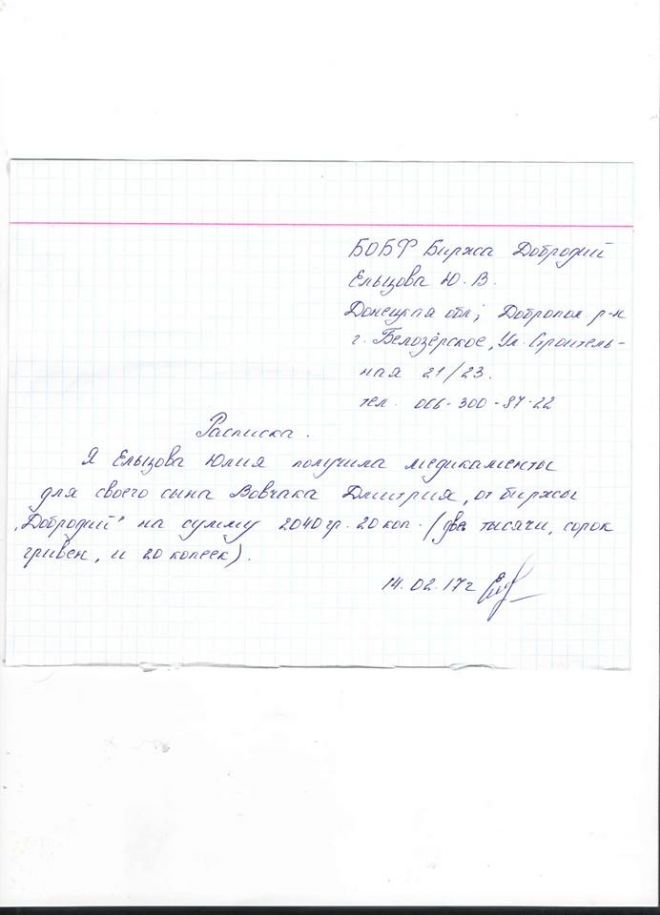 БОБФ Биржа Добродий
Ельцова Ю. В.
Донецкая обл; Добропол р-н
г. Белозёрское, Ул. Строитель-
ная 21/23.
тел. 066-300-87-22
Расписка.
Я Ельцова Юлия получила медикаменты
для своего сына Вовчака Дмитрия, от биржы
"Добродий" на сумму 2040 гр. 20 коп. (две тысячи, сорок
гривен, и 20 копеек).
14.02.17г